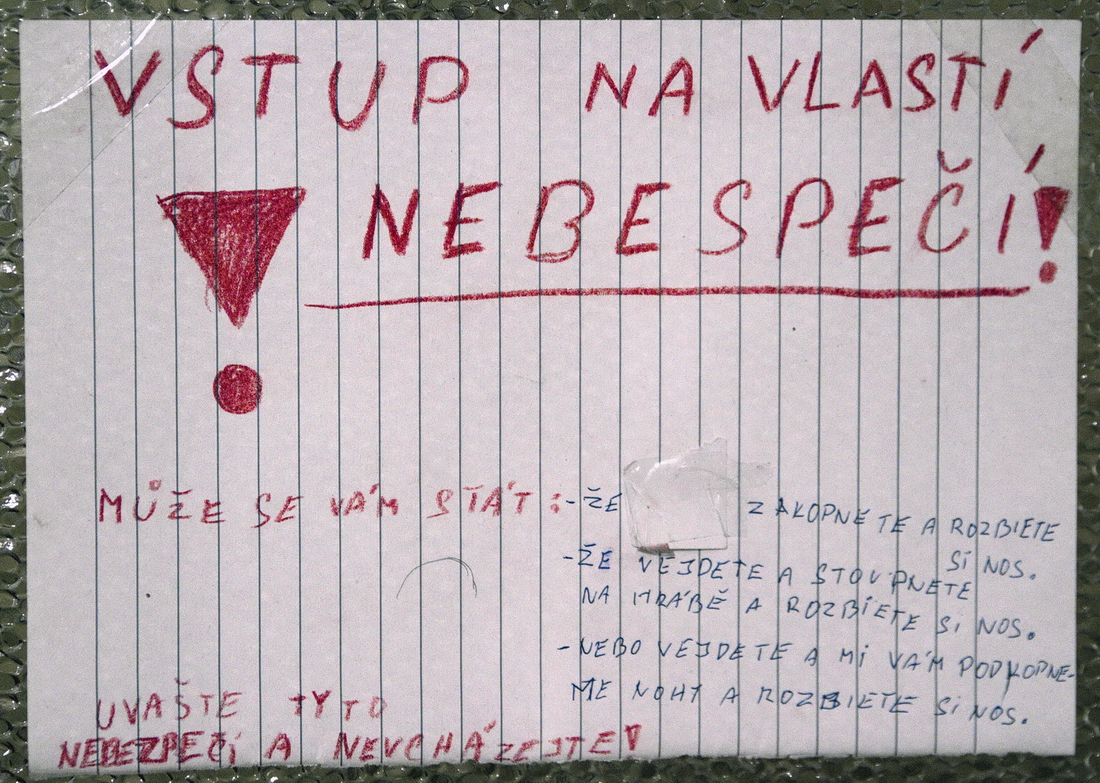 VSTUP NA VLASTÍ
NEBESPEČÍ!
MŮŽE SE VÁM STÁT:
-ŽE ZAKOPNETE A ROZBIETE
SI NOS.
-ŽE VEJDETE A STOUPNETE
NA HRÁBĚ A ROZBÍETE SI NOS.
-NEBO VEJDETE A MI VÁM PODKOPNE-
ME NOHY A ROZBIETE SI NOS.
UVAŠTE TYTO
NEBEZPEČÍ A NEVCHÁZEJTE!